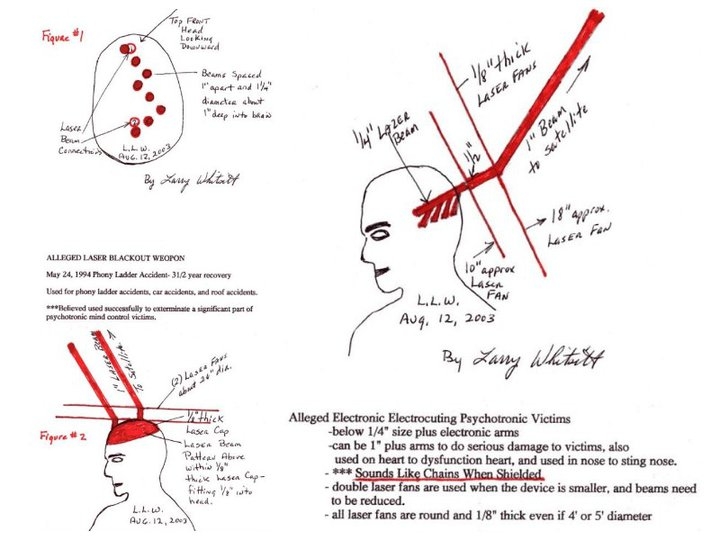 Figure #1
Top FRONT
Head
Looking
Downward
Beams Spaced
1" apart and 1 1/4"
diameter about
1" deep into brain
Laser
Beam
Connections
L.L.W.
AUG. 12, 2003
By Larry Whitsitt
ALLEGED LASER BLACKOUT WEOPON
May 24, 1994 Phony Ladder Accident- 31/2 year recovery
Used for phony ladder accidents, car accidents, and roof accidents.
***Believed used successfully to exterminate a significant part of
psychotronic mind control victims.
1" LASER BEAM
To Satellite
(2) Laser FANS
about 24" dia.
1/8" thick
Laser Cap
Figure #2
Laser Beam
Pattern Above
within 1/8"
thick Laser Cap-
fitting 1/8" into
head.
L.L.W.
AUG. 12, 2003
1/8" thick
LASER FANS
1/4" LAZER
Beam
1/2"
1" Beam
to satellite
18" approx.
LASER FAN
10" approx
Laser
FAN
L.L.W.
Aug, 12, 2003
By Larry Whitsitt
Alleged Electronic Electrocuting Psychotronic Victims
-below 1/4" size plus electronic arms
-can be 1" plus arms to do serious damage to victims, also
used on heart to dysfunction heart, and used in nose to sting nose.
- *** Sounds Like Chains When Shielded
- double laser fans are used when the device is smaller, and beams need
to be reduced.
- all laser fans are round and 1/8" thick even if 4' or 5' diameter